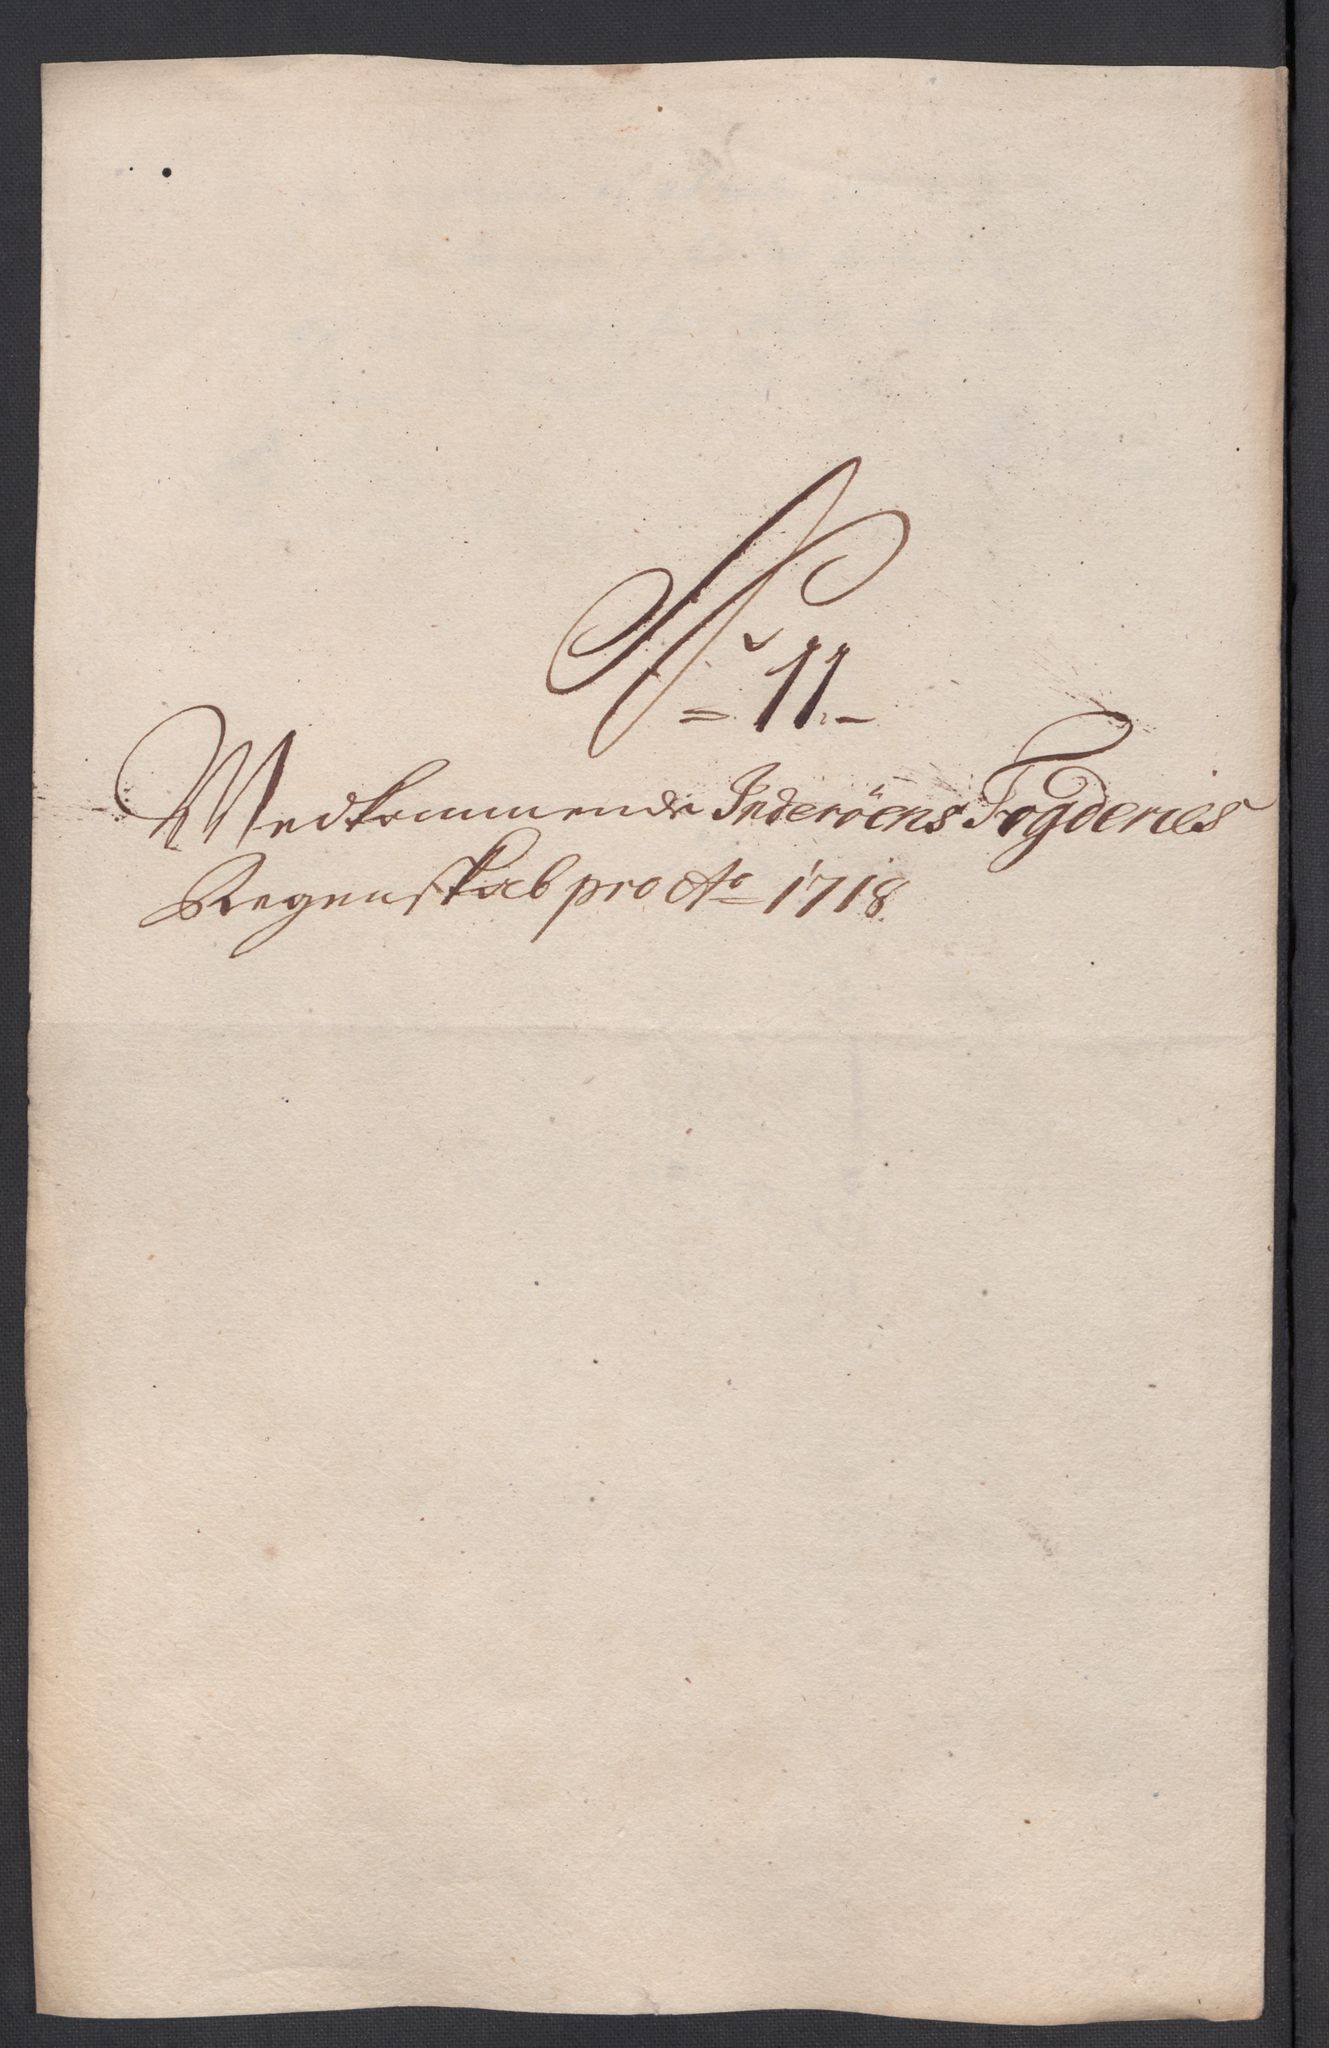 No 11.
Medkommende Inderöens Fogderies
Regenskab pro Ao 1718